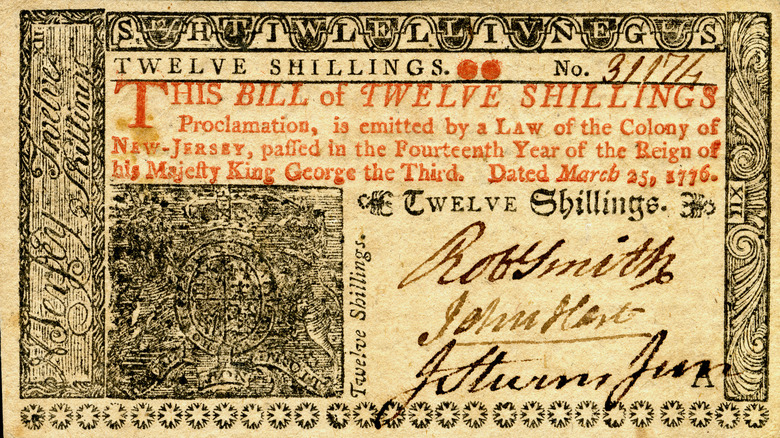 TWELVE SHILLINGS. No. 31174
THIS BILL of TWELVE SHILLINGS
Proclamation, is emitted by a LAW of the Colony of
NEW-JERSEY, paſſed in the Fourteenth Year of the Reign of
his Majeſty King George the Third. Dated March 25, 1776.
TWELVE Shillings.
Twelve Shillings.
RobSmith
John Hart
JSturns Jun
A
Jerſey Twelve Shillings
XII